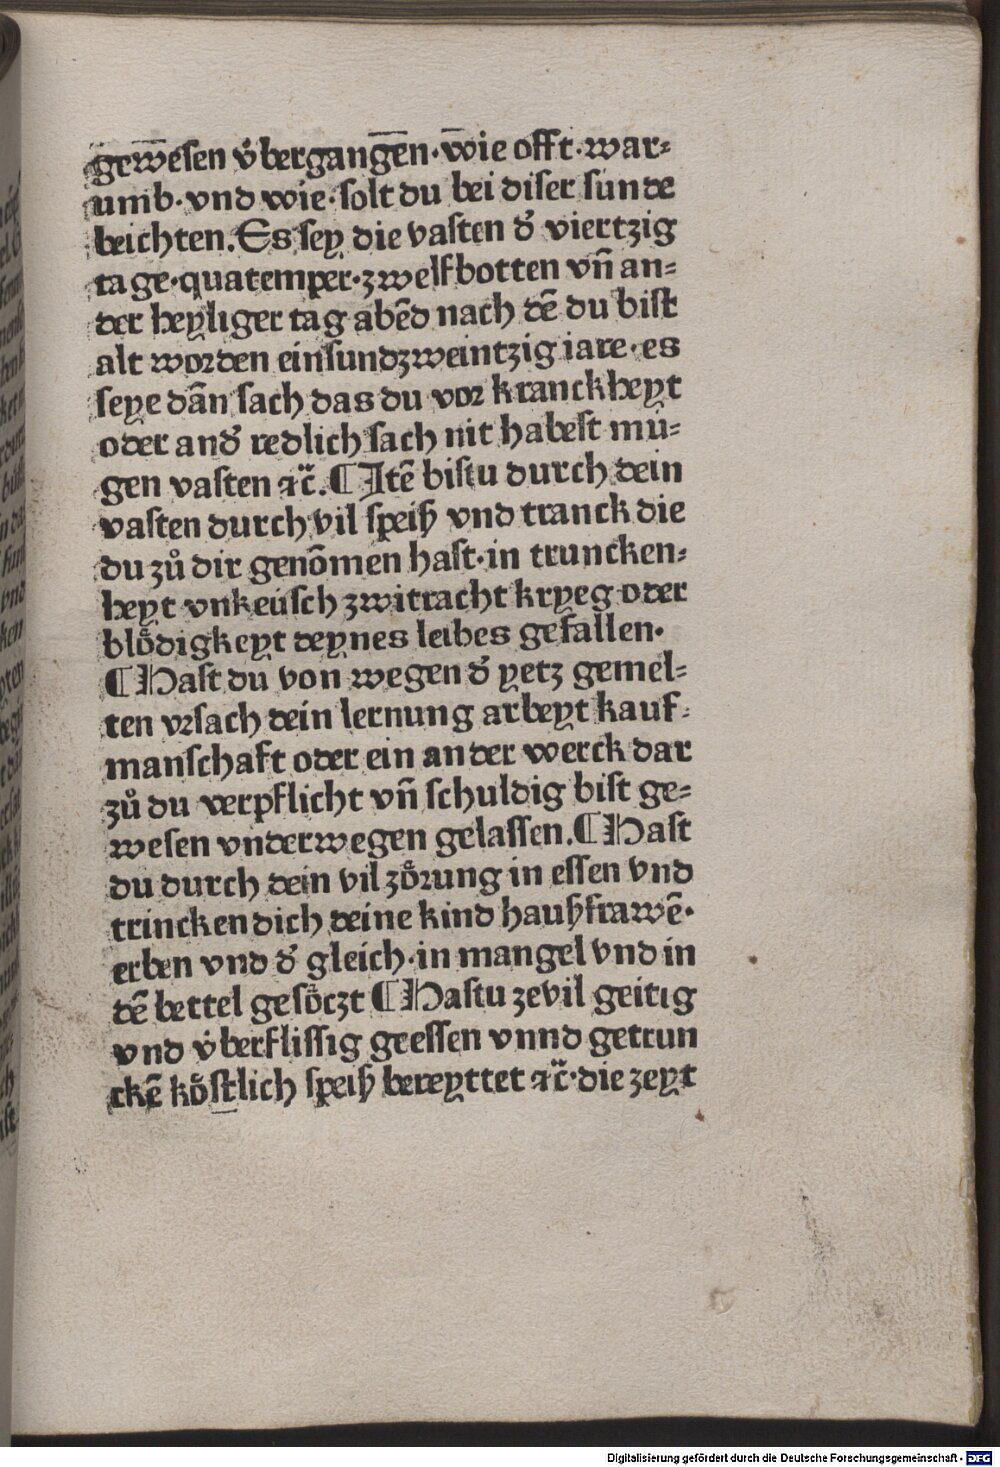 gewesen v̇bergangen·wie offt·war⸗
umb·vnd wie·solt du bei diser sunde
beichten.Es sey die vasten d' viertzig
tage·quatemper·zwelfbotten vn̄ an⸗
der heyliger tag abēd nach dē du bist
alt worden einsundzweintzig iare·es
seye dān sach das du vor kranckheyt
oder and' redlich sach nit habest mu⸗
gen vasten ⁊c̈.¶Itē bistu durch dein
vasten durch vil speiß vnd tranck die
du zů dir genōmen hast·in truncken⸗
heyt vnkeusch zwitracht kryeg oder
blo̊digkeyt deynes leibes gefallen·
¶Hast du von wegen d' yetz gemel⸗
ten vrsach dein lernung arbeyt kauf⸗
manschaft oder ein ander werck dar
zů du verpflicht vn̄ schuldig bist ge⸗
wesen vnderwegen gelassen.¶Hast
du durch dein vil zo̊rung in essen vnd
trincken dich deine kind haußfrawē·
erben vnd d' gleich·in mangel vnd in
dē bettel geso̊czt ¶Hastu zevil geitig
vnd v̇berflissig geessen vnnd getrun
ckē ko̊stlich speiß bereyttet ⁊c̈·die zeyt
Digitalisierung gefördert durch die Deutsche Forschungsgemeinschaft - DFG